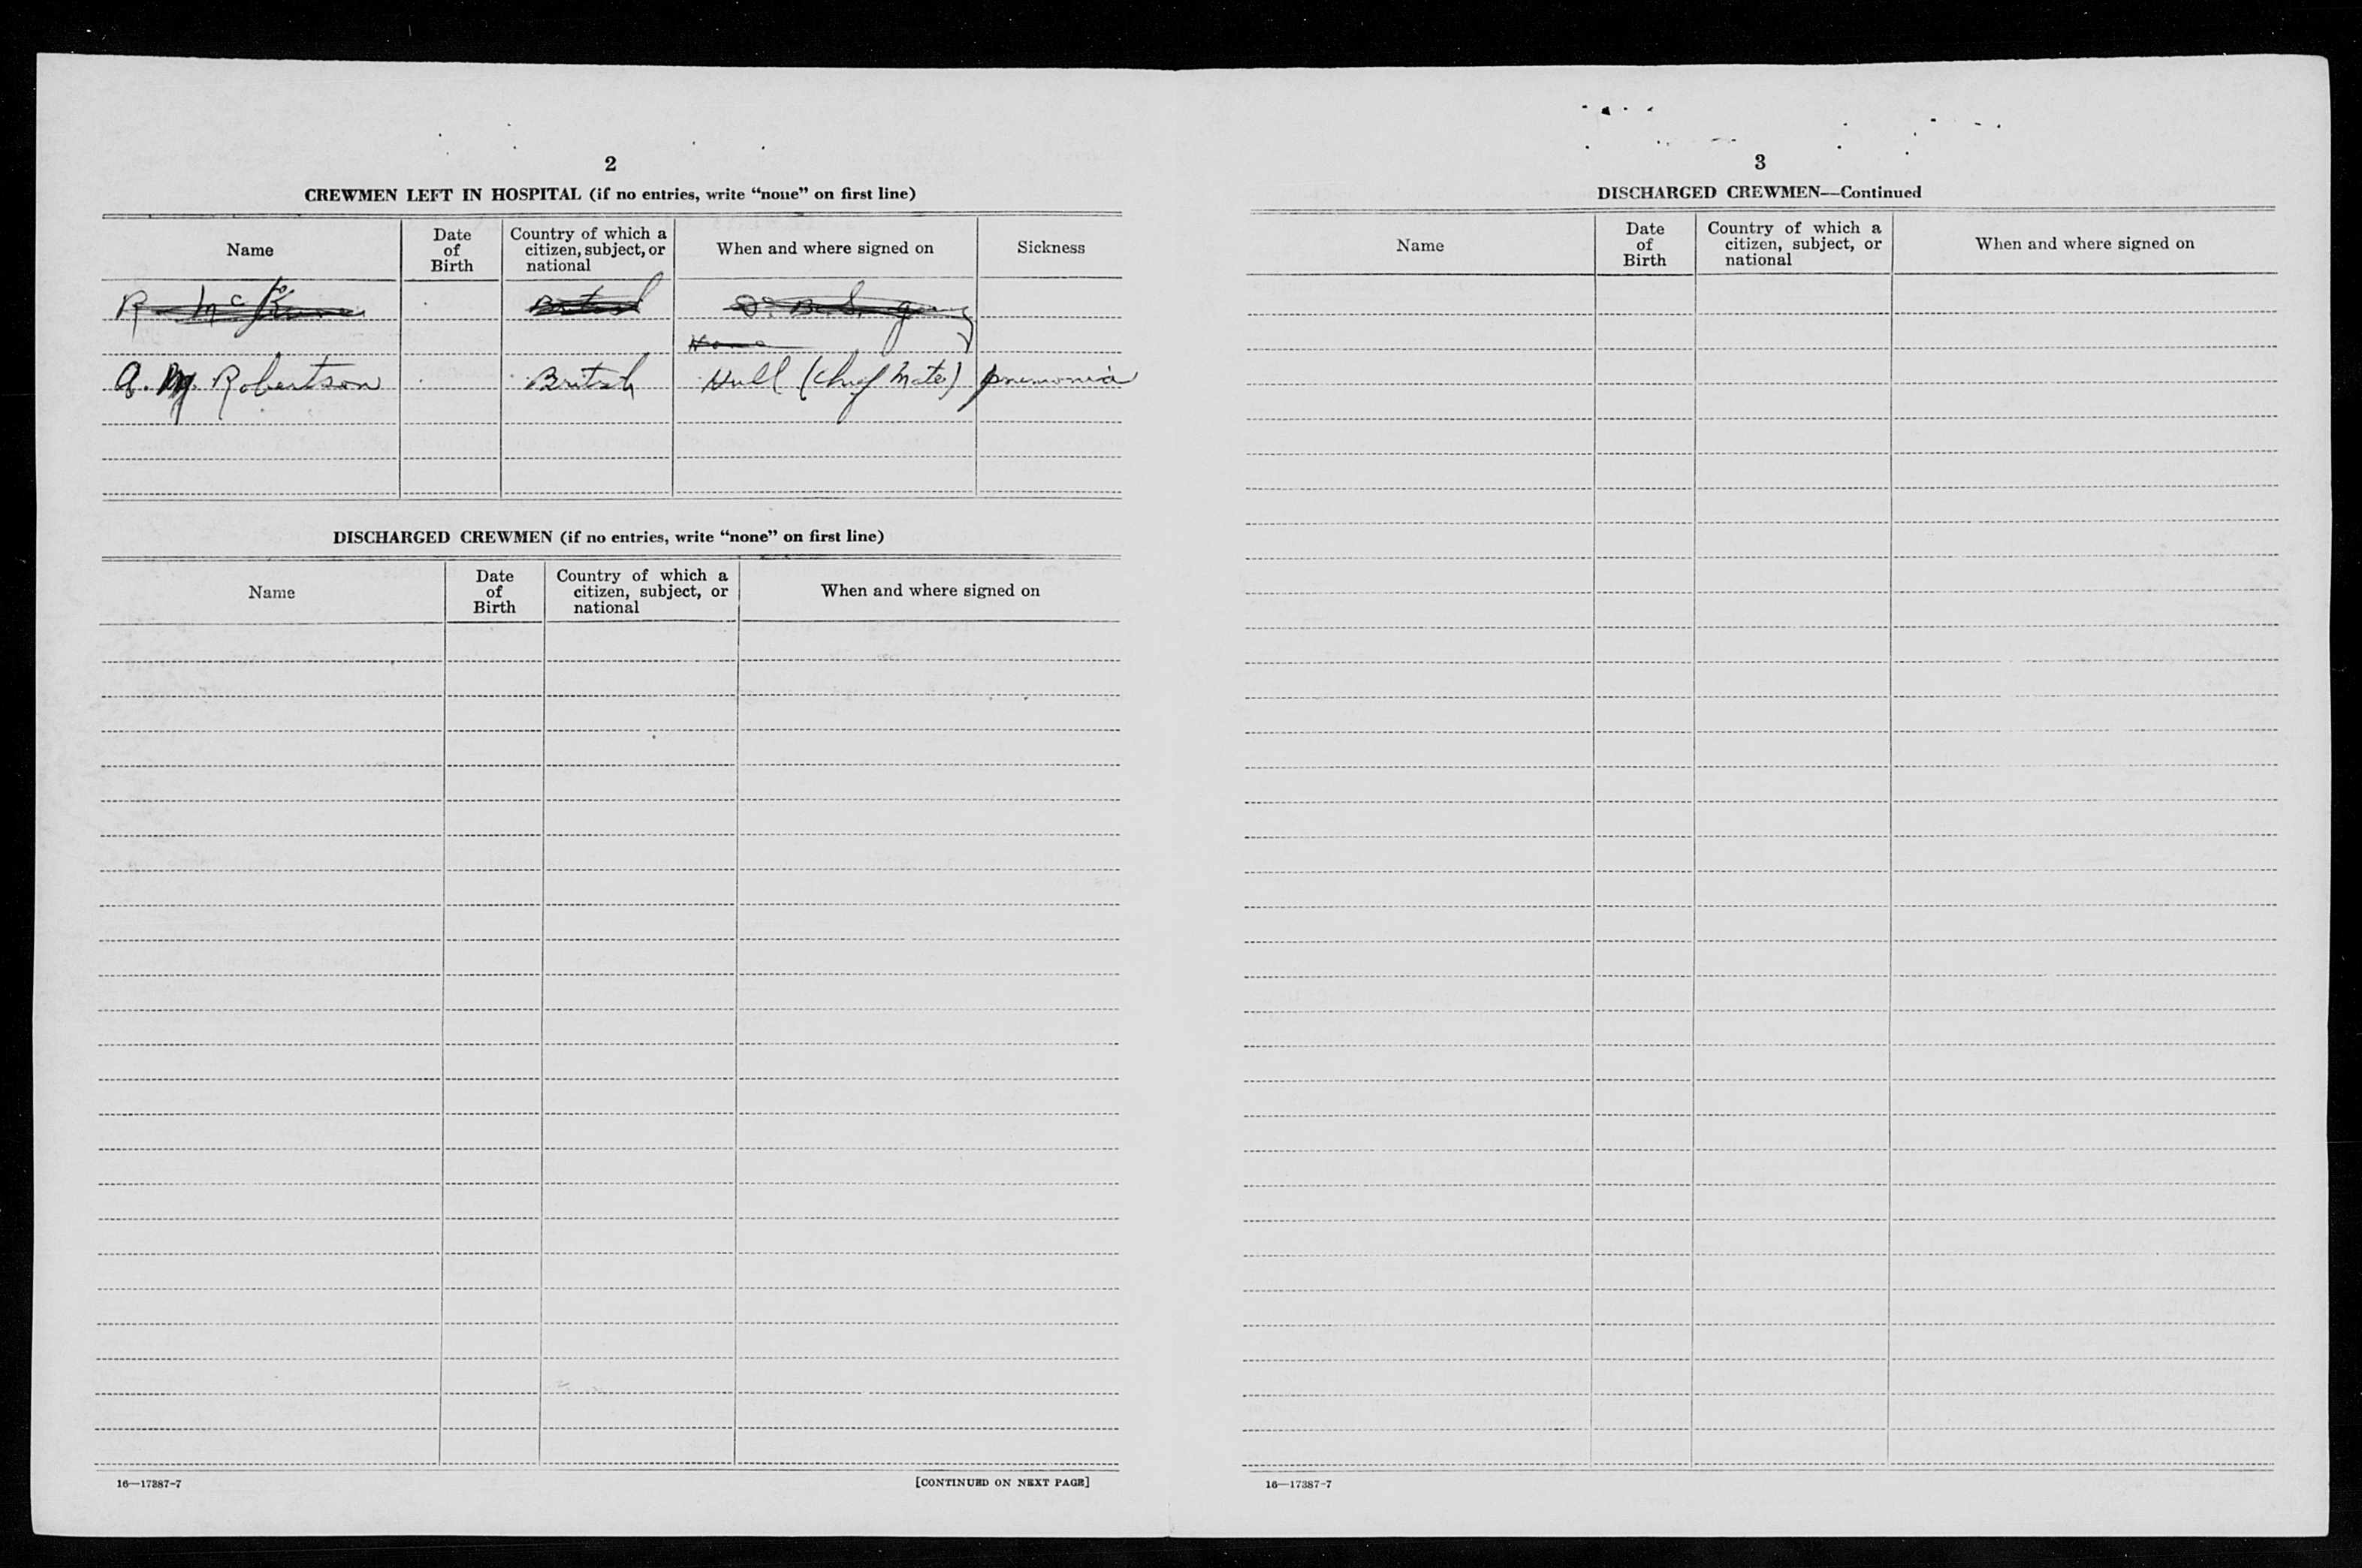 2
CREWMEN LEFT IN HOSPITAL (if no entries, write “none” on first line)
Name
Date of Birth
Country of which a citizen, subject, or national
When and where signed on
Sickness
R McK
British
None
A. M. Robertson British Hull (Chief Mate) pnemonia
DISCHARGED CREWMEN (if no entries, write “none” on first line)
Name
Date of Birth
Country of which a citizen, subject, or national
When and where signed on
16—17387-7
[CONTINUED ON NEXT PAGE]
3
DISCHARGED CREWMEN—Continued
Name
Date of Birth
Country of which a citizen, subject, or national
When and where signed on
16—17387-7